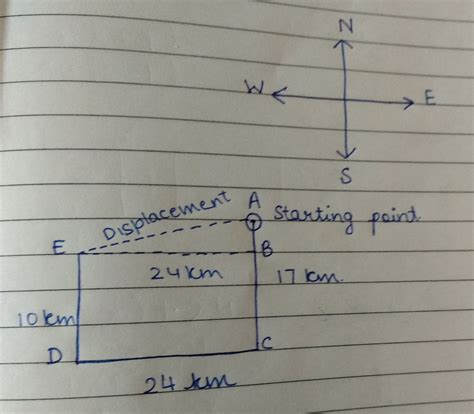 N
W E
S
A
Displacement Starting point
E B
24 km 17 km.
10 km
D C
24 km